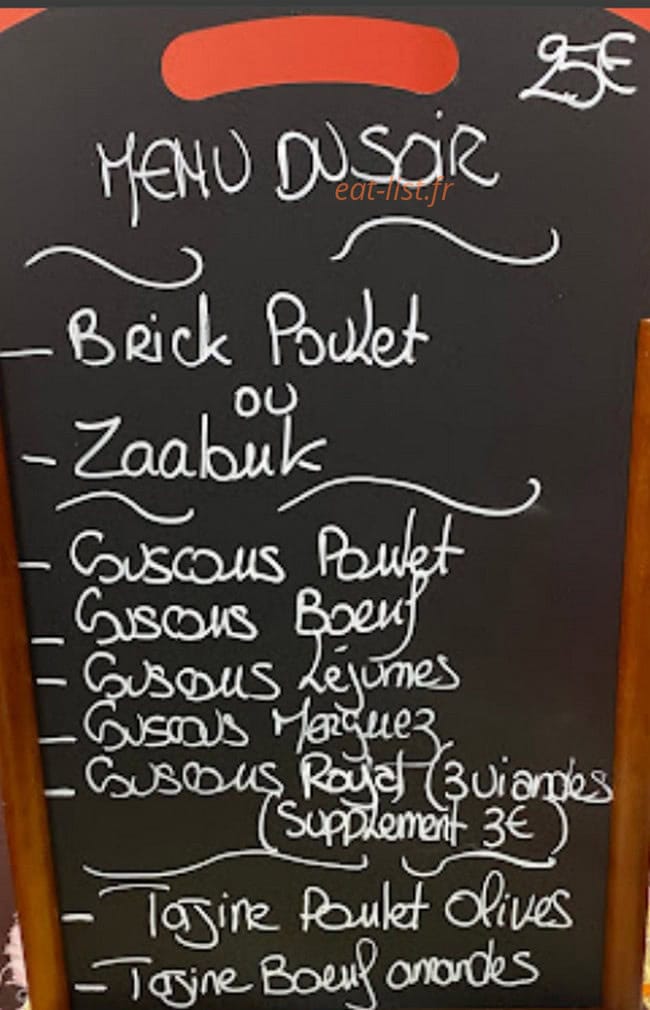 25€
MENU DU SOIR
eat-list.fr
- Brick Poulet
ou
- Zaabuk
- Couscous Poulet
- Couscous Boeuf
- Couscous Légumes
- Couscous Merguez
- Couscous Royal (3 viandes
(Supplément 3€)
- Tajine Poulet Olives
- Tajine Boeuf amandes